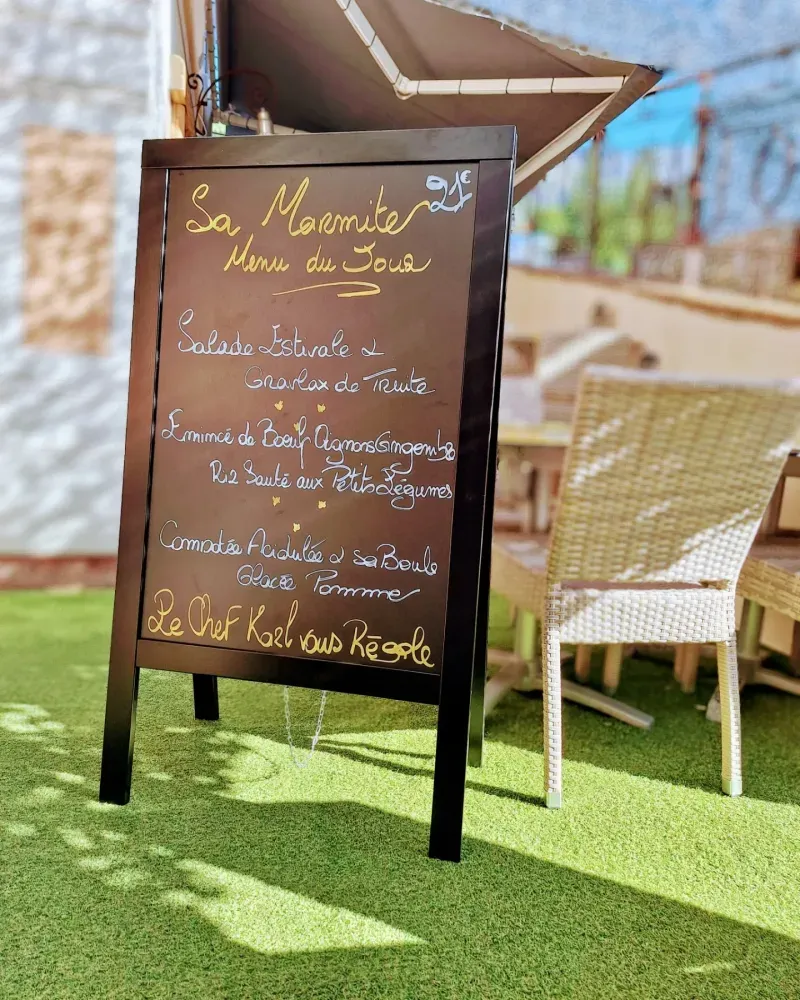 Sa Marmite 21€
Menu du Jour
Salade Estivale &
Gravlax de Truite
Emincé de Boeuf Oignons Gingembre
Riz Sauté aux Petits Légumes
Compotée Acidulée & sa Boule
Glacée Pomme
Le Chef Karl vous Régale